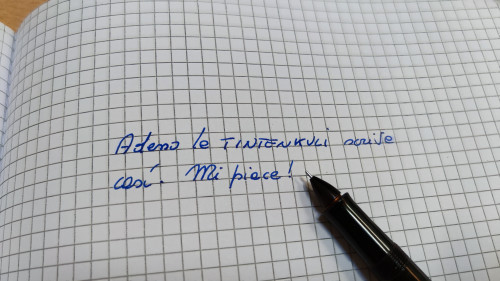 Adesso le TINTENKULI scrive
così. Mi piace!